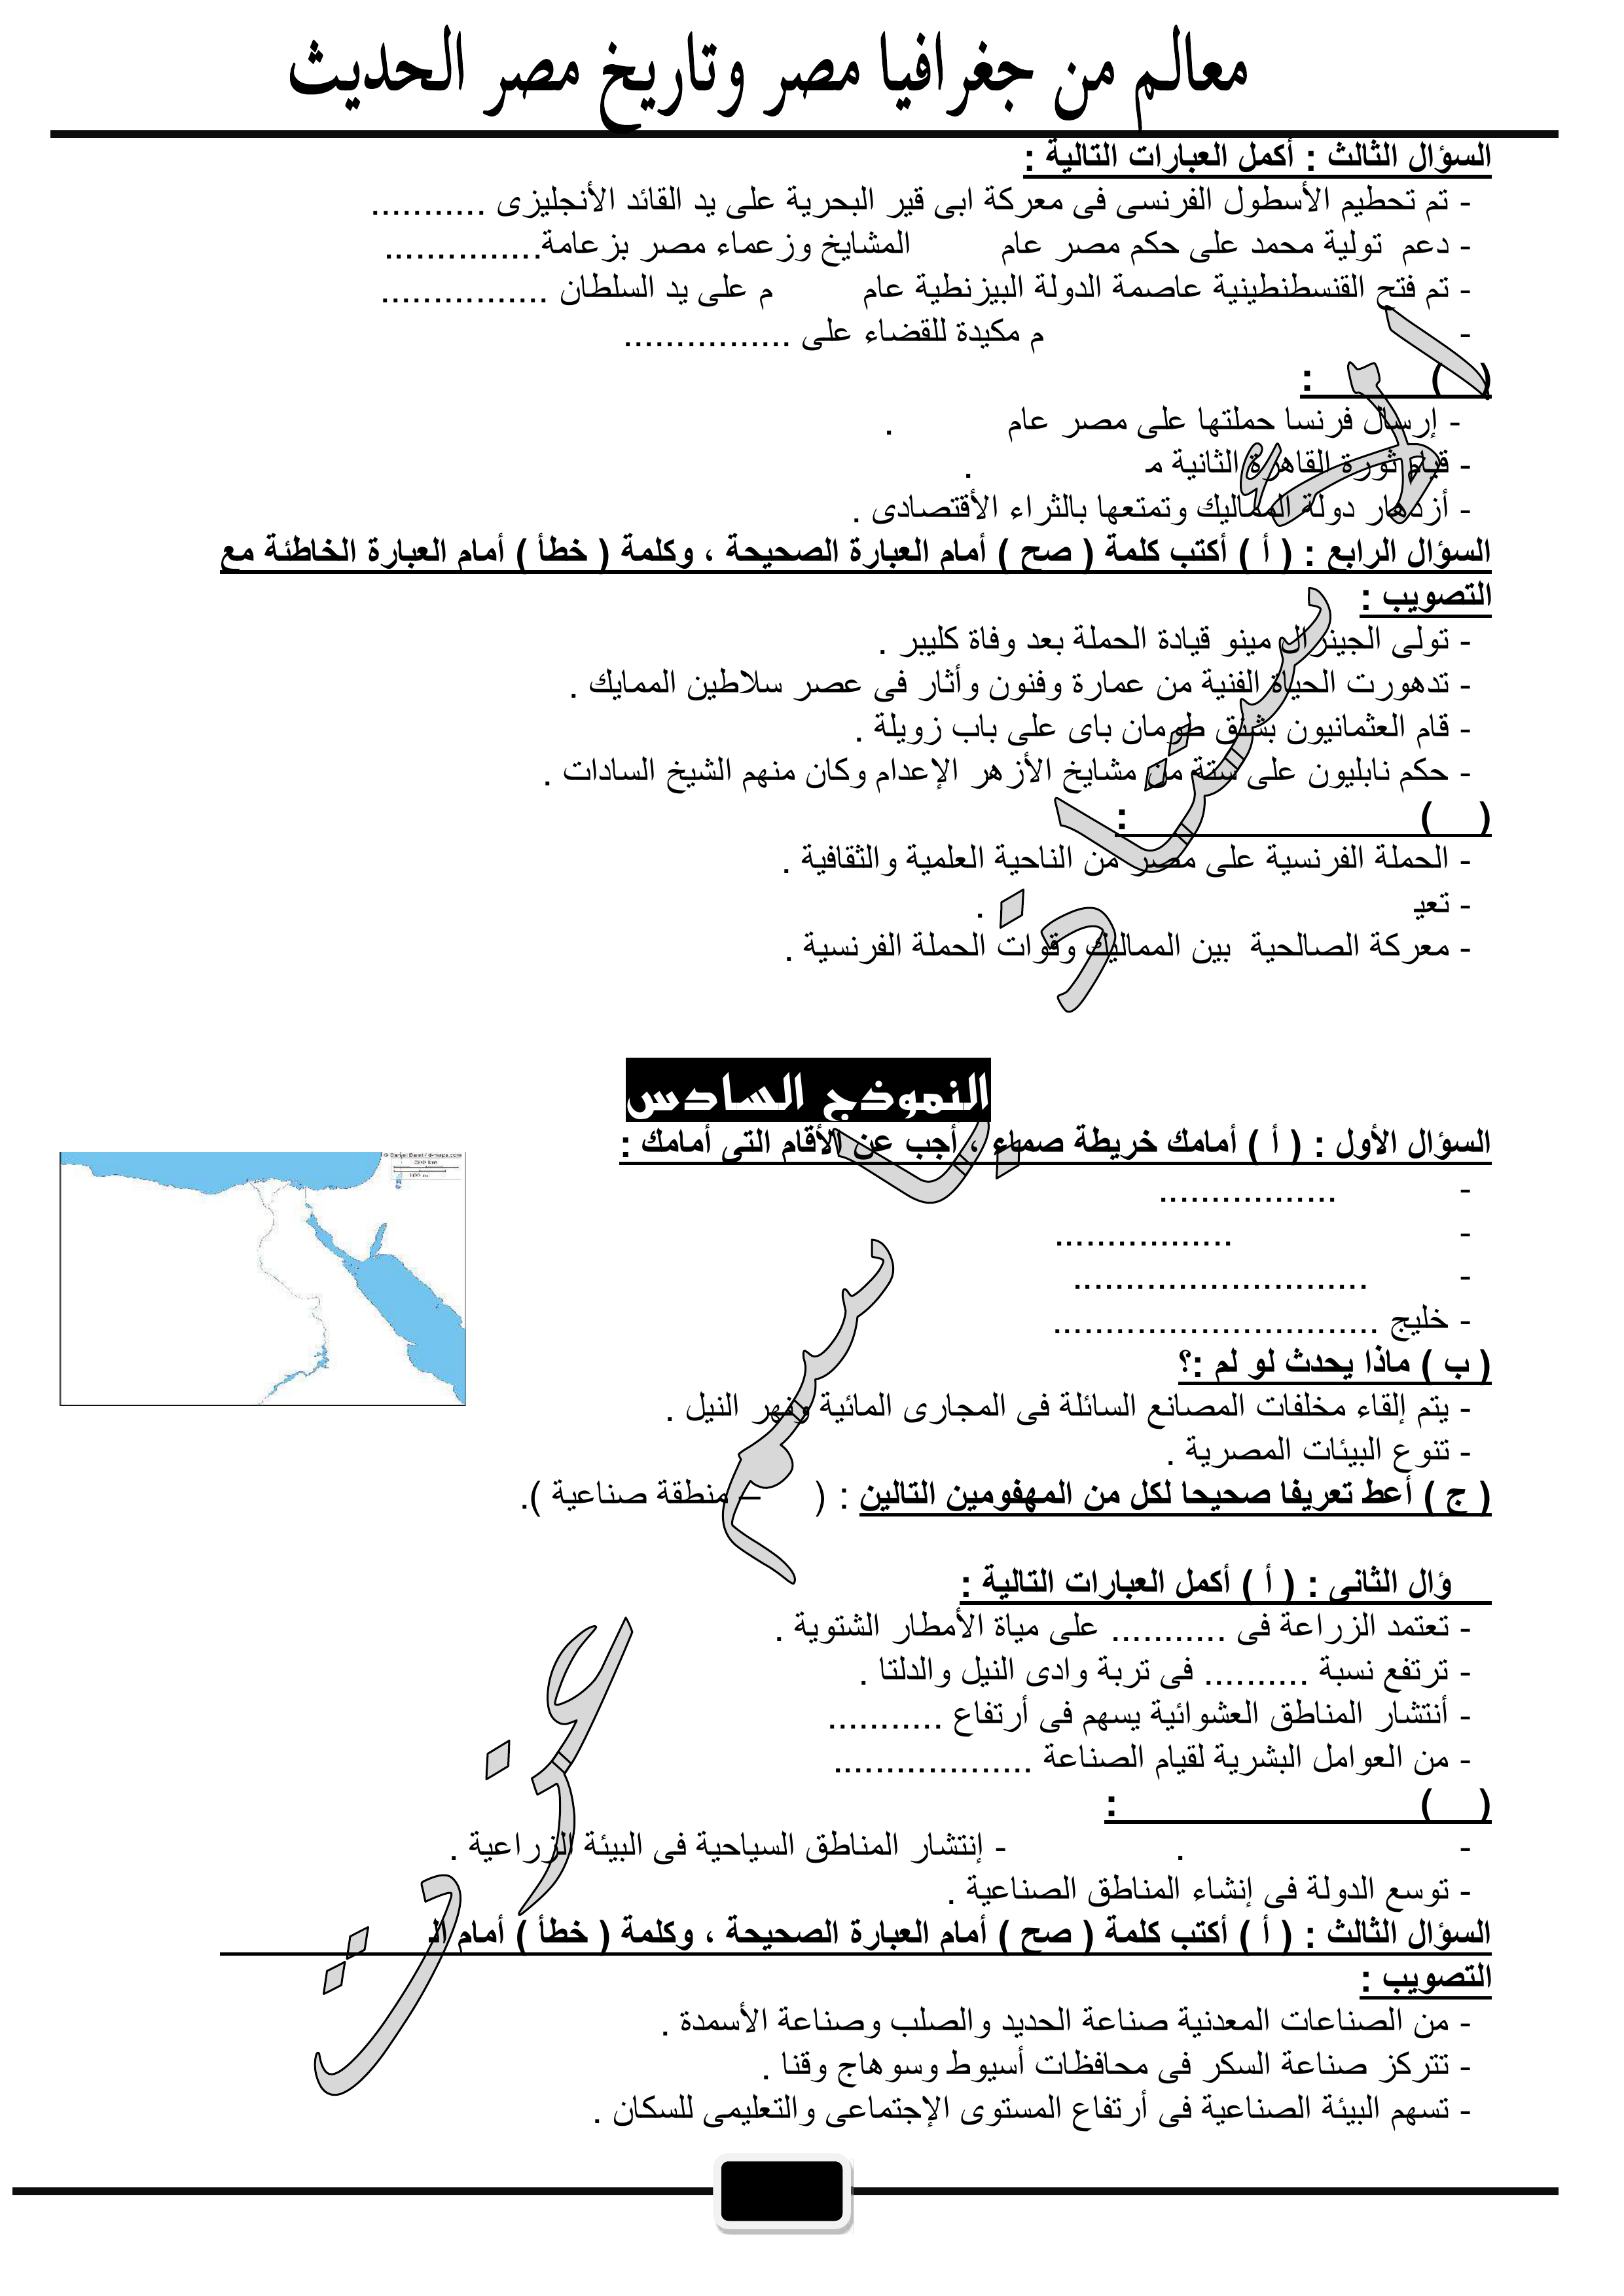 معالم من جغرافيا مصر وتاريخ مصر الحديث
السؤال الثالث : أكمل العبارات التالية :
- تم تحطيم الأسطول الفرنسى فى معركة ابى قير البحرية على يد القائد الأنجليزى ...........
- دعم تولية محمد على حكم مصر عام المشايخ وزعماء مصر بزعامة................
- تم فتح القنسطنطينية عاصمة الدولة البيزنطية عام م على يد السلطان ................
- م مكيدة للقضاء على ................
( ) :
- إرسال فرنسا حملتها على مصر عام .
- قيام ثورة القاهرة الثانية مـ .
- أزدهار دولة المماليك وتمتعها بالثراء الأقتصادى .
السؤال الرابع : ( أ ) أكتب كلمة ( صح ) أمام العبارة الصحيحة ، وكلمة ( خطأ ) أمام العبارة الخاطئة مع
التصويب :
- تولى الجينرال مينو قيادة الحملة بعد وفاة كليبر .
- تدهورت الحياة الفنية من عمارة وفنون وأثار فى عصر سلاطين الممايك .
- قام العثمانيون بشنق طومان باى على باب زويلة .
- حكم نابليون على ستة من مشايخ الأزهر الإعدام وكان منهم الشيخ السادات .
( ) :
- الحملة الفرنسية على مصر من الناحية العلمية والثقافية .
- تعيـ .
- معركة الصالحية بين المماليك وقوات الحملة الفرنسية .
النموذج السادس
السؤال الأول : ( أ ) أمامك خريطة صماء ، أجب عن الأقام التى أمامك :
- .................
- .................
- ............................
- خليج ...............................
( ب ) ماذا يحدث لو لم :؟
- يتم إلقاء مخلفات المصانع السائلة فى المجارى المائية ونهر النيل .
- تنوع البيئات المصرية .
( ج ) أعط تعريفا صحيحا لكل من المهفومين التالين : ( – منطقة صناعية ).
ؤال الثانى : ( أ ) أكمل العبارات التالية :
- تعتمد الزراعة فى ........... على مياة الأمطار الشتوية .
- ترتفع نسبة .......... فى تربة وادى النيل والدلتا .
- أنتشار المناطق العشوائية يسهم فى أرتفاع ...........
- من العوامل البشرية لقيام الصناعة ...................
( ) :
- . - إنتشار المناطق السياحية فى البيئة الزراعية .
- توسع الدولة فى إنشاء المناطق الصناعية .
السؤال الثالث : ( أ ) أكتب كلمة ( صح ) أمام العبارة الصحيحة ، وكلمة ( خطأ ) أمام الـ
التصويب :
- من الصناعات المعدنية صناعة الحديد والصلب وصناعة الأسمدة .
- تتركز صناعة السكر فى محافظات أسيوط وسوهاج وقنا .
- تسهم البيئة الصناعية فى أرتفاع المستوى الإجتماعى والتعليمى للسكان .